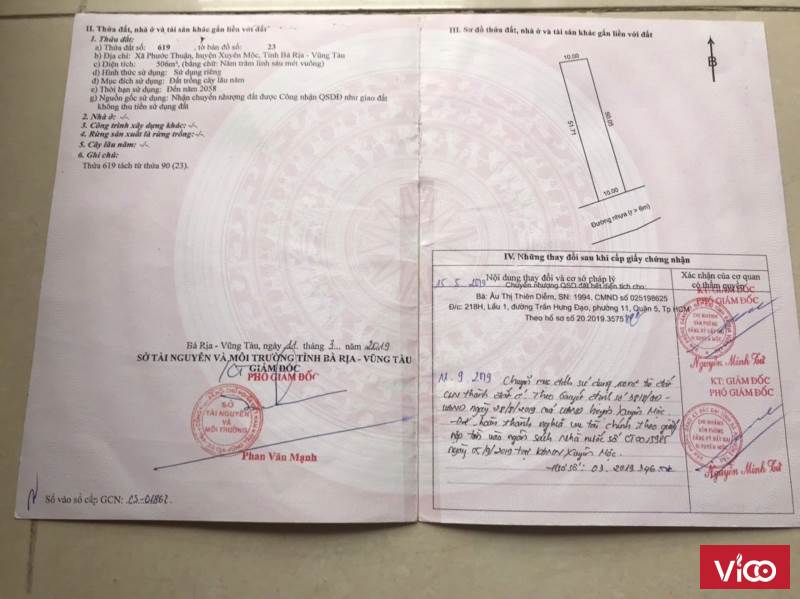 II. Thửa đất, nhà ở và tài sản khác gắn liền với đất
1. Thửa đất:
a) Thửa đất số: 619, tờ bản đồ số: 23
b) Địa chỉ: Xã Phước Thuận, huyện Xuyên Mộc, Tỉnh Bà Rịa - Vũng Tàu
c) Diện tích: 506m², (bằng chữ: Năm trăm linh sáu mét vuông)
d) Hình thức sử dụng: Sử dụng riêng
đ) Mục đích sử dụng: Đất trồng cây lâu năm
e) Thời hạn sử dụng: Đến năm 2058
g) Nguồn gốc sử dụng: Nhận chuyển nhượng đất được Công nhận QSDĐ như giao đất
không thu tiền sử dụng đất
2. Nhà ở: -/-
3. Công trình xây dựng khác: -/-
4. Rừng sản xuất là rừng trồng: -/-
5. Cây lâu năm: -/-
6. Ghi chú:
Thửa 619 tách từ thửa 90 (23).
Bà Rịa - Vũng Tàu, ngày 21 tháng 3 năm 2019
SỞ TÀI NGUYÊN VÀ MÔI TRƯỜNG TỈNH BÀ RỊA - VŨNG TÀU
KT GIÁM ĐỐC
PHÓ GIÁM ĐỐC
SỞ
TÀI NGUYÊN
VÀ
MÔI TRƯỜNG
Phan Văn Mạnh
Số vào sổ cấp GCN: CS-01862
III. Sơ đồ thửa đất, nhà ở và tài sản khác gắn liền với đất
B
10.00
51.71
50.05
10.00
Đường nhựa (r > 6m)
IV. Những thay đổi sau khi cấp giấy chứng nhận
Nội dung thay đổi và cơ sở pháp lý
Xác nhận của cơ quan
có thẩm quyền
15.5.2019 Chuyển nhượng QSD đất hết diện tích cho:
Bà: Âu Thị Thiên Diễm, SN: 1994, CMND số 025198625
Đ/c: 218H, Lầu 1, đường Trần Hưng Đạo, phường 11, Quận 5, Tp HCM
Theo hồ sơ số 20.2019.3575
KT: GIÁM ĐỐC
PHÓ GIÁM ĐỐC
CHI NHÁNH
VĂN PHÒNG
ĐĂNG KÝ ĐẤT ĐAI
H. XUYÊN MỘC
Nguyễn Minh Tứ
9.2019 Chuyển mục đích sử dụng từ đất
CLN thành đất ở. Theo Quyết định số
UBND ngày của UBND huyện Xuyên Mộc
Đã hoàn thành nghĩa vụ tài chính theo giấy
nộp tiền vào ngân sách nhà nước số
ngày 05/9/2019 tại KBNN Xuyên Mộc.
Hồ sơ số: 03.2019.346
KT: GIÁM ĐỐC
PHÓ GIÁM ĐỐC
CHI NHÁNH
VĂN PHÒNG
ĐĂNG KÝ ĐẤT ĐAI
H. XUYÊN MỘC
Nguyễn Minh Tứ
ViCO